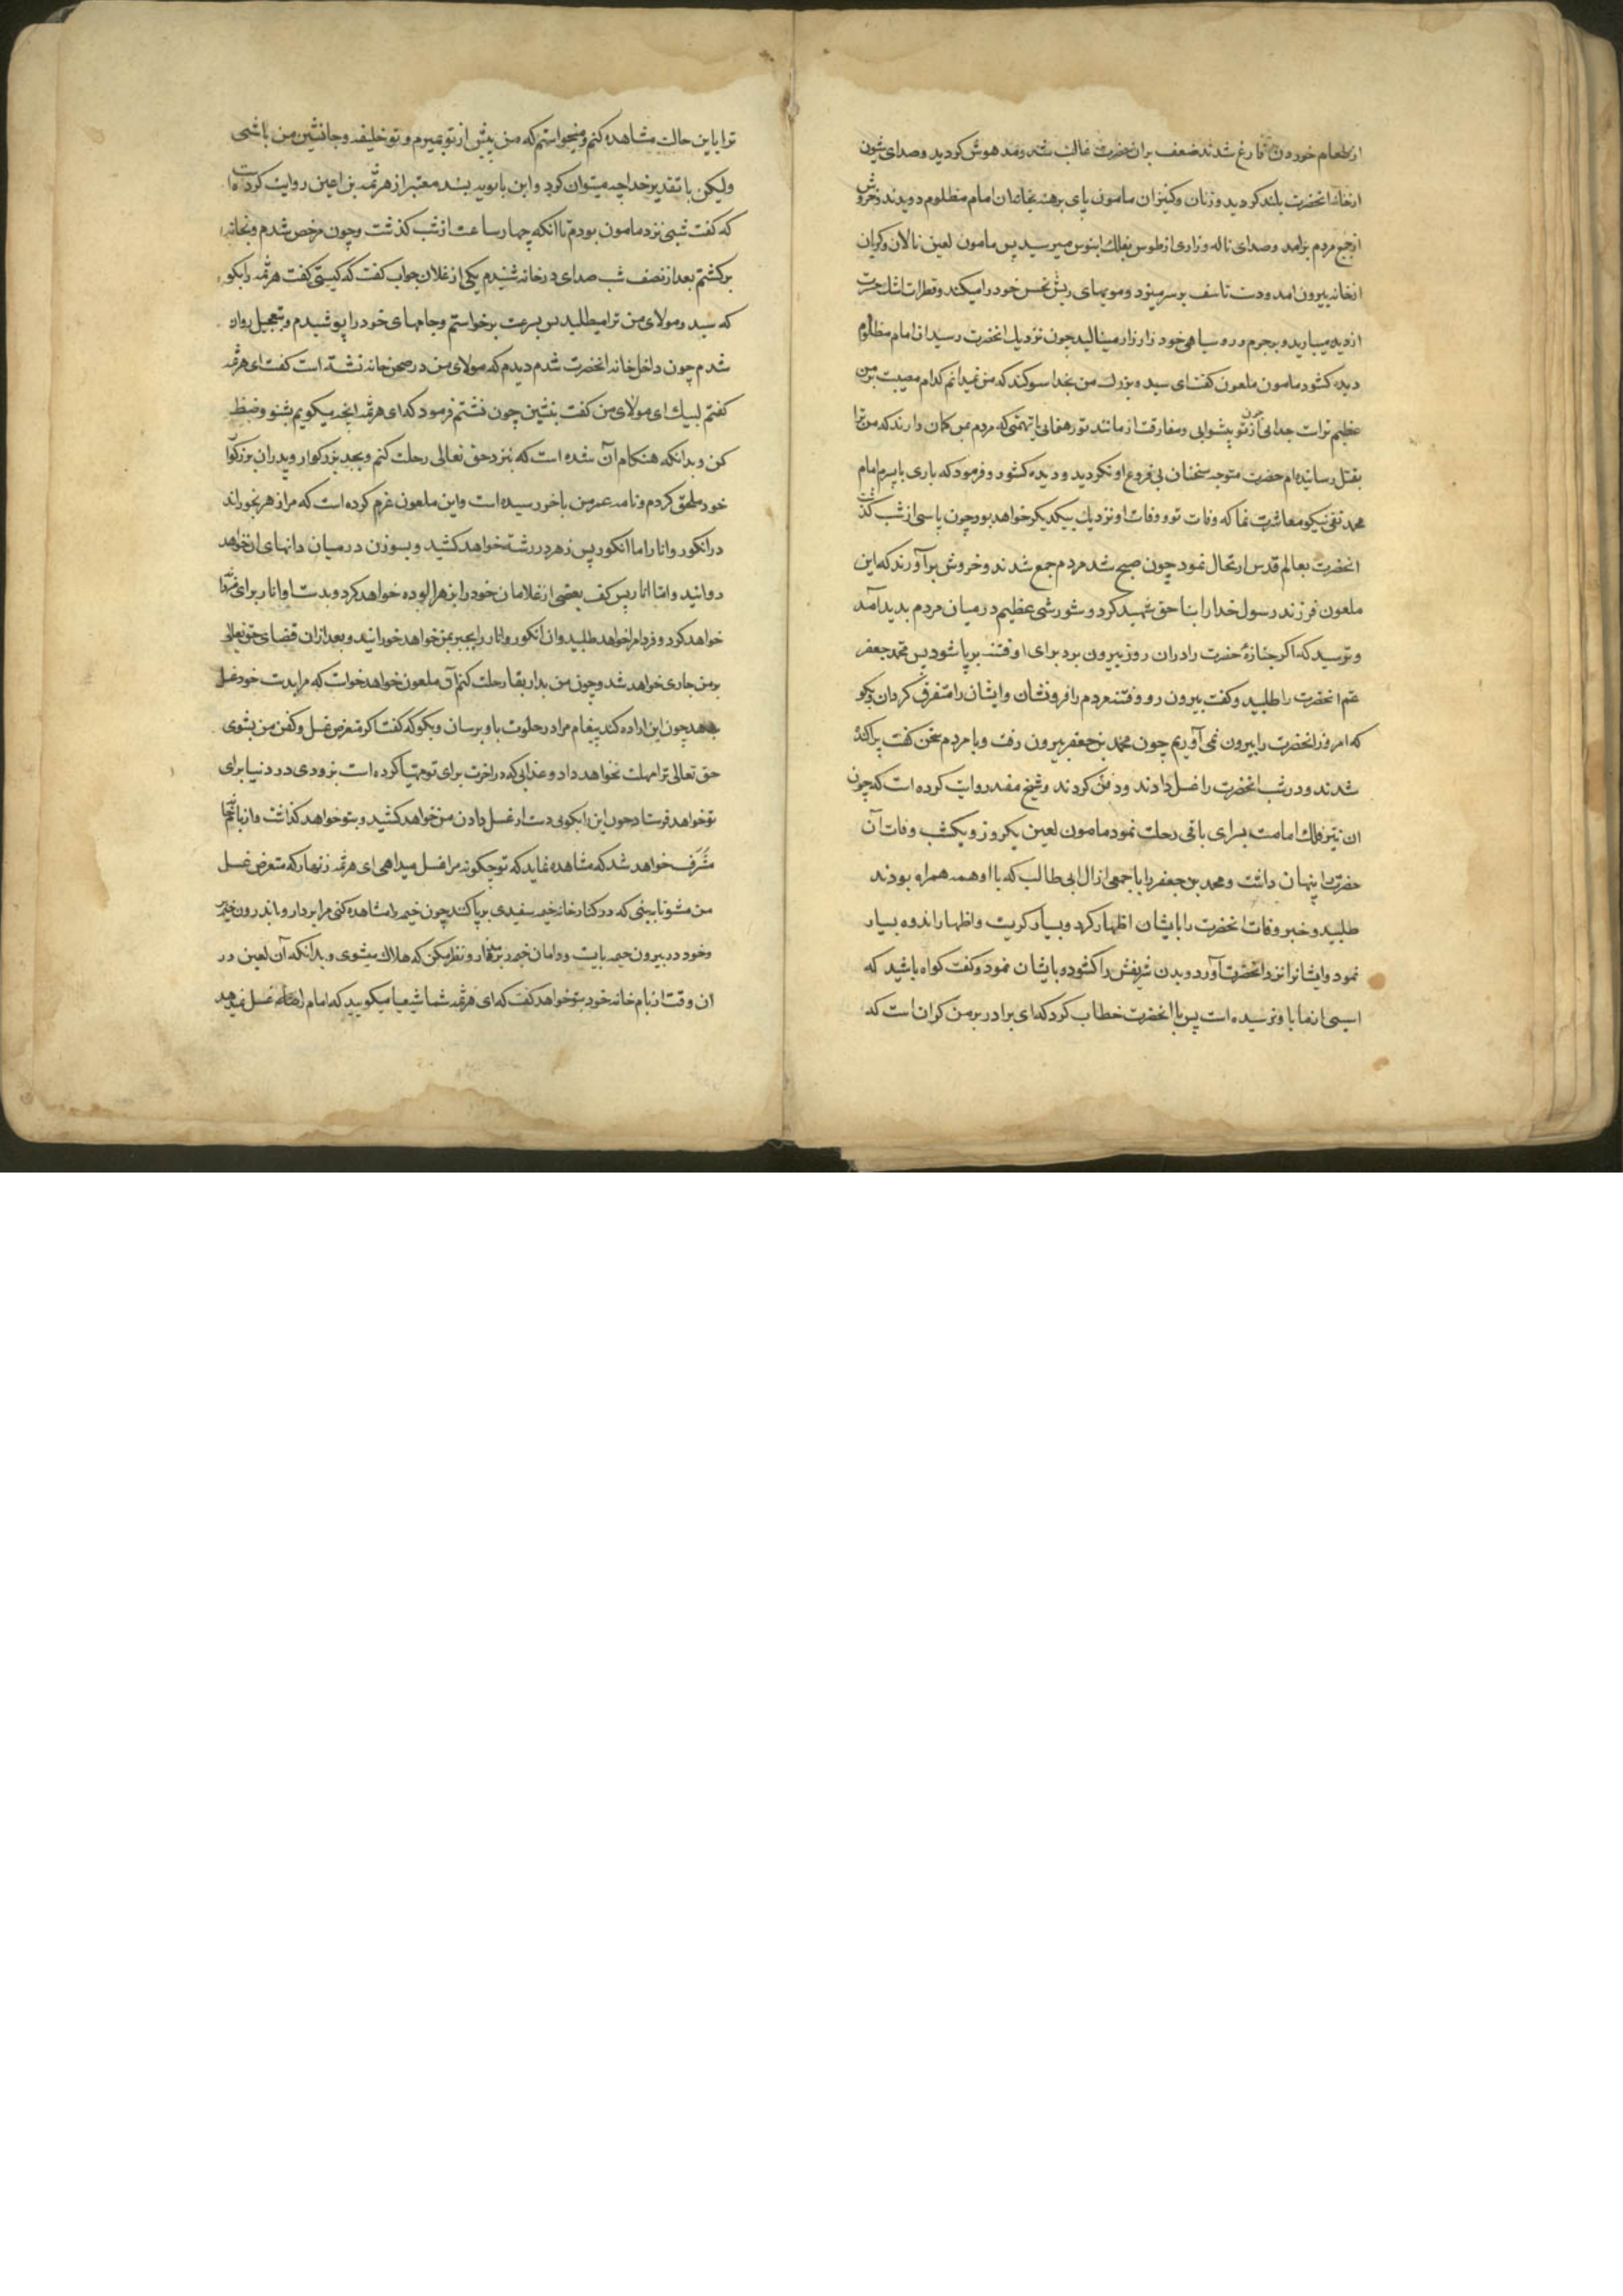 از طعام خوردن فارغ شدند ضعف بران حضرت غالب شد و مدهوش کردید و صدای شیون
از خانه انحضرت بلند کردید و زنان و کنیزان مامون پای برهنه بخانه ان امام مظلوم دویدند و خروش
از جمع مردم برامد و صدای ناله و زاری از طوس بفلک ابنوس میرسید پس مامون لعین نالان و کریان
از خانه بیرون امد و دست تاسف بر سر میزد و مویهای ریش نحس خود را میکند و قطرات اشک حسرت
از دیده میبارید و بر جرم و رو سیاهی خود زار زار مینالید چون نزدیک انحضرت رسید ان امام مظلوم
دیده کشود مامون ملعون کفت ای سید و بزرک من بخدا سوکند که من نمیدانم کدام مصیبت بر من
عظیم تر است جدایی چون تو پیشوایی و مفارقت از مانند تو رهنمایی یا تهمتی که مردم بمن کمان دارند که من ترا
بقتل رسانیده ام حضرت متوجه سخنان بی فروغ او نکردید و دیده کشود و فرمود که باری با پسرم امام
محمد تقی نیکو معاشرت نما که وفات تو و وفات او نزدیک بیکدیکر خواهد بود چون پاسی از شب کذشت
انحضرت بعالم قدس ارتحال نمود چون صبح شد مردم جمع شدند و خروش برآوردند که این
ملعون فرزند رسول خدا را بنا حق شهید کرد و شورشی عظیم در میان مردم بدید آمد
و ترسید که اکر جنازهٔ حضرت را دران روز بیرون برد برای او فتنه برپا شود پس محمد جعفر
عم انحضرت را طلبید و کفت بیرون رو و فتنه مردم را فرو نشان و ایشان را متفرق کردان و بکو
که امروز انحضرت را بیرون نمی آوریم چون محمد بن جعفر بیرون رفت و با مردم سخن کفت پراکنده
شدند و در شب انحضرت را غسل دادند و دفن کردند و شیخ مفید روایت کرده است که چون
ان نیّر فلک امامت بسرای باقی رحلت نمود مامون لعین یکروز و یکشب وفات آن
حضرت را پنهان داشت و محمد بن جعفر را با جمعی از ال ابی طالب که با او همه همراه بودند
طلبید و خبر وفات انحضرت را بایشان اظهار کرد و بسیار کریست و اظهار اندوه بسیار
نمود و ایشانرا نزد انحضرت آورد و بدن شریفش را کشود و بایشان نمود و کفت کواه باشید که
اسیبی از ما باو نرسیده است پس با انحضرت خطاب کرد که ای برادر بر من کران است که
ترا باین حالت مشاهده کنم و میخواستم که من پیش از تو بمیرم و تو خلیفه و جانشین من باشی
ولیکن با تقدیر خدا چه میتوان کرد و ابن بابویه بسند معتبر از هرثمه بن اعین روایت کرده است
که کفت شبی نزد مامون بودم تا آنکه چهار ساعت از شب کذشت و چون مرخص شدم و بخانه
برکشتم بعد از نصف شب صدای در خانه شنیدم یکی از غلامان جواب کفت که کیستی کفت هرثمه را بکو
که سید و مولای من ترا میطلبد پس بسرعت برخواستم و جامهای خود را پوشیدم و بتعجیل روان
شدم چون داخل خانه انحضرت شدم دیدم که مولای من در صحن خانه نشسته است کفت ای هرثمه
کفتم لبیک ای مولای من کفت بنشین چون نشستم فرمود که ای هرثمه انچه میکویم بشنو و ضبط
کن و بدانکه هنکام آن شده است که بنزد حق تعالی رحلت کنم و بجد بزرکوار و پدران بزرکوار
خود ملحق کردم و نامه عمر من باخر رسیده است و این ملعون عزم کرده است که مرا زهر بخوراند
در انکور و انار اما انکور پس زهر در رشته خواهد کشید و بسوزن در میان دانهای ان خواهد
دوانید و امّا انار پس کف بعضی از غلامان خود را بزهر الوده خواهد کرد و بدست او انار برای من دانه
خواهد کرد و فردا مرا خواهد طلبید و ان انکور و انار را بجبر بمن خواهد خورانید و بعد از ان قضای حق تعالی
بر من جاری خواهد شد و چون من بدار بقا رحلت کنم آن ملعون خواهد خواست که مرا بدست خود غسل
دهد چون این اراده کند پیغام مرا در خلوت باو برسان و بکو که کفت اکر متعرض غسل و کفن من بشوی
حق تعالی ترا مهلت نخواهد داد و عذابی که در اخرت برای تو مهیا کرده است بزودی در دنیا برای
تو خواهد فرستاد چون این را بکویی دست از غسل دادن من خواهد کشید و بتو خواهد کذاشت و از بام
مشرف خواهد شد که مشاهده نماید که تو چکونه مرا غسل میدهی ای هرثمه زنهار که متعرض غسل
من مشو تا ببینی که در کنار خانه خیمه سفیدی برپا کنند چون خیمه را مشاهده کنی مرا بردار و باندرون خیمه بر
و خود در بیرون خیمه بایست و دامان خیمه بر مدار و نظر مکن که هلاک میشوی و بدانکه آن لعین در
ان وقت از بام خانه خود بتو خواهد کفت که ای هرثمه شما شیعیا میکویید که امام را غسل نمیدهد